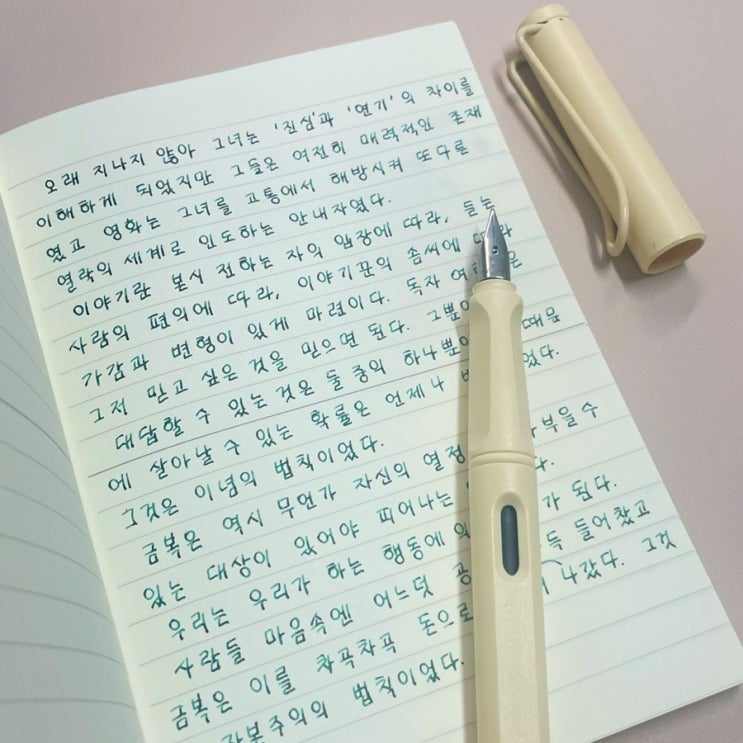 오래 지나지 않아 그녀는 '진심'과 '연기'의 차이를
이해하게 되었지만 그들은 여전히 매력적인 존재
였고 영화는 그녀를 고통에서 해방시켜 또다른
열락의 세계로 인도하는 안내자였다.
이야기란 본시 전하는 자의 입장에 따라, 듣는
사람의 편의에 따라, 이야기꾼의 솜씨에
가감과 변형이 있게 마련이다. 독자
그저 믿고 싶은 것을 믿으면 된다.
대답할 수 있는 것은 둘 중의
에 살아날 수 있는 확률은 언제나
그것은 이념의 법칙이었다.
금복은 역시 무언가 자신의 열정
있는 대상이 있어야 피어나는
우리는 우리가 하는 행동에 가 된다.
사람들 마음속엔 어느덧 들어찼고
금복은 이를 차곡차곡 돈으로 나갔다. 그것
자본주의의 법칙이었다.